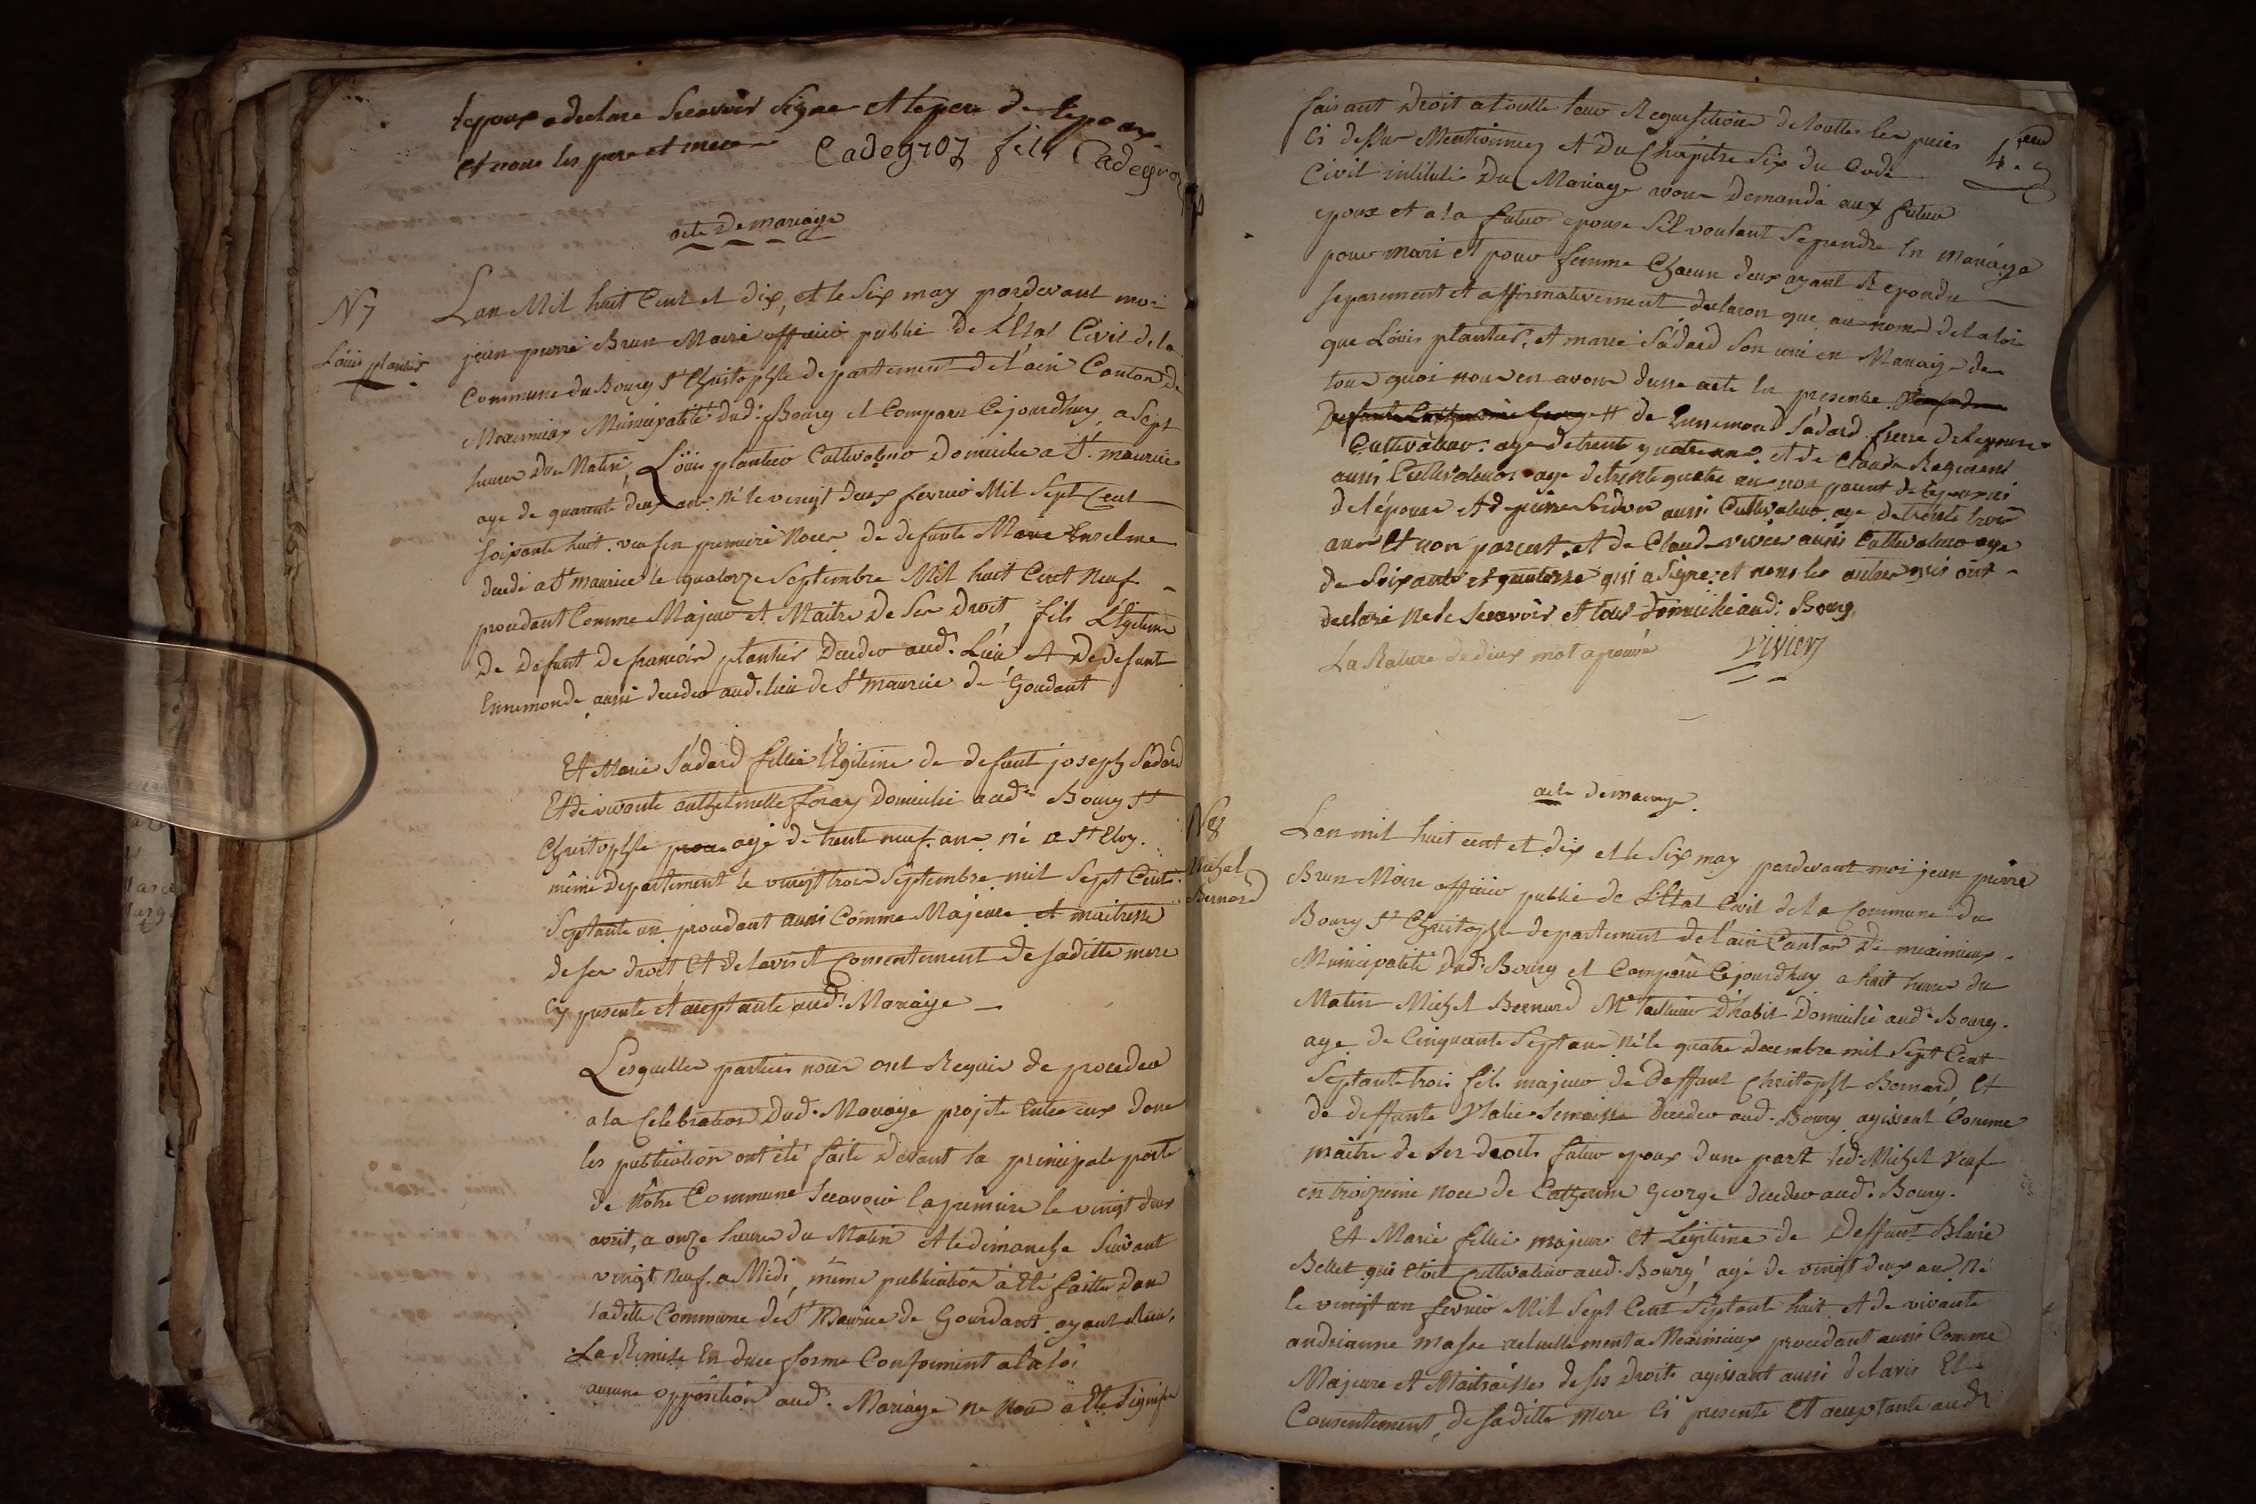 lepoux a declare scavoir signe et le pere de lepoux
et nous les pere et mere Cadegroz fils Cadegroz
acte De mariage
N 7
Loüis plantier
Lan Mil huit Cent et dix, et le six may pardevant moi
jean pierre Brun Maire officier public De L'Etat Civil de la
Commune du Bourg St Christophle departement de l'ain Canton de
Meximieux Municipalité dud: Bourg et Comparu Cejourdhuy a Sept
heures Du Matin, Loüis plantier Cultivateur Domicilié a St. maurice
age de quarante deux ans né le vingt deux fevrier Mil Sept Cent
soixante huit. de defunte Marie Enselme
decede a St maurice le quatorze Septembre Mil huit Cent Neuf
procedant Comme Majeur et Maitre De Ses Droit, fils Légitime
De Defunt De francois plantier Decede aud. Lieu et De defunt
Ennemonde aussi decede aud. lieu de St maurice de Goudant
Et Marie Sadard fille légitime de defunt joseph Sadard
Et de vivante anthelmette foray Domicilié aud. Bourg St
Christophle agé de trente neuf ans né a St Eloy.
même Departement le vingt trois Septembre mil Sept Cent
Septante un procedant aussi Comme Majeure et maitresse
de ses droit et de lavis et Consentement De saditte mere
Cy presente et aceptante aud. Mariage
Lesquelles parties nous ont Requis de proceder
a la Celebration Dud. Mariage projeté Entre eux donc
les publication ont été faite Devant la principale porte
de Nôtre Commune Scavoir la premiere le vingt deux
avril, a onze heures du Matin et le dimanche Suivant
vingt Neuf a Midi, même publication a été faitte Dans
laditte Commune de St Maurice de Gourdant ayant
La Remise En due forme Conforment a la loi
aucune opposition aud. Mariage ne Nous a Eté Signifié
4.
faisant Droit a toutte leur Requisition de toutte les pieces
Ci dessus Mentionnez et Du Chapitre Six du Code
Civil intitulé Du Mariage avons Demandé aux futur
epoux et a la futur epouse Sil voulant Seprendre En Mariage
pour Mari et pour femme Chacun deux ayant Repondu
Separement et affirmativement declaron que au nom de la loi
que Loüis plantier, et marie Sadard Son uni en Mariage de
tous quoi nous en avons dusse acte En presence
de Ennemond Sadard frere de lepouse
Cultivateur age de trente quatre ans et de Claude
aussi Cultivateur age de trente quatre ans non parent de lepoux ni
de l'épouse et de pierre aussi Cultivateur age de trente trois
ans Et non parent et de Claude vivier aussi Cultivateur age
de Soixante et quatorze qui a signé et nous les autres qui ont
declaré ne le Scavoir et tous Domicilié aud: Bourg.
La Rature de deux mot aprouvé Vivier
acte de mariage.
N 8
Michel
Bernard
Lan mil huit cent et dix et le Six may pardevant moi jean pierre
Brun Maire officier public de L'Etat Civil de la Commune du
Bourg St Christophle departement de l'ain Canton De meximieux
Municipalité dud. Bourg et Comparu Cejourdhuy a huit heures du
Matin Michel Bernard Me tailleur D'habit Domicilié aud. Bourg.
age de Cinquante Sept ans né le quatre Decembre mil Sept Cent
Septante trois fils majeur de Deffunt Christophle Bernard, Et
de deffunte Decedez aud. Bourg agissant Comme
maitre de Ses droits futur epoux dune part led. Michel veuf
en troisieme noce de Catherine George decedez aud. Bourg.
Et Marie fille majeur Et Legitime de Deffunt Blaise
Bellet qui Etoit Cultivateur aud. Bourg, agé de vingt deux ans Né
le vingt un fevrier Mil Sept Cent Septante huit et de vivante
andrianne Masse actuellement a Meximieux procedant aussi Comme
Majeure et Maitraisse de ses Droits agissant aussi de lavis Et
Consentement, de saditte Mere Ci presente Et aceptante aud.